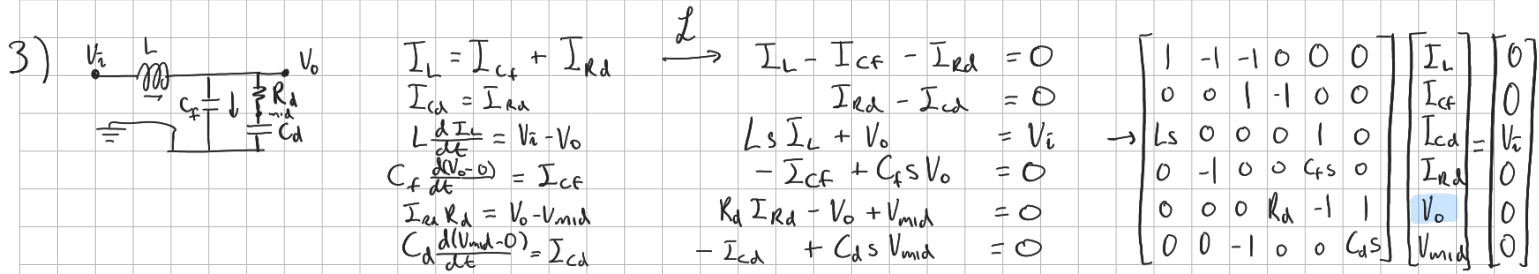 3)
Vi L Vo
Cf Rd
mid
Cd
I_L = I_Cf + I_Rd
I_Cd = I_Rd
L dI_L/dt = Vi - Vo
C_f d(Vo-0)/dt = I_Cf
I_Rd R_d = Vo - Vmid
C_d d(Vmid-0)/dt = I_Cd
ℒ →
I_L - I_Cf - I_Rd = 0
I_Rd - I_Cd = 0
Ls I_L + Vo = Vi
- I_Cf + C_f s Vo = 0
R_d I_Rd - Vo + Vmid = 0
- I_Cd + C_d s Vmid = 0
→
1 -1 -1 0 0 0 I_L 0
0 0 1 -1 0 0 I_Cf 0
Ls 0 0 0 1 0 I_Cd = Vi
0 -1 0 0 C_f s 0 I_Rd 0
0 0 0 R_d -1 1 Vo 0
0 0 -1 0 0 C_d s Vmid 0